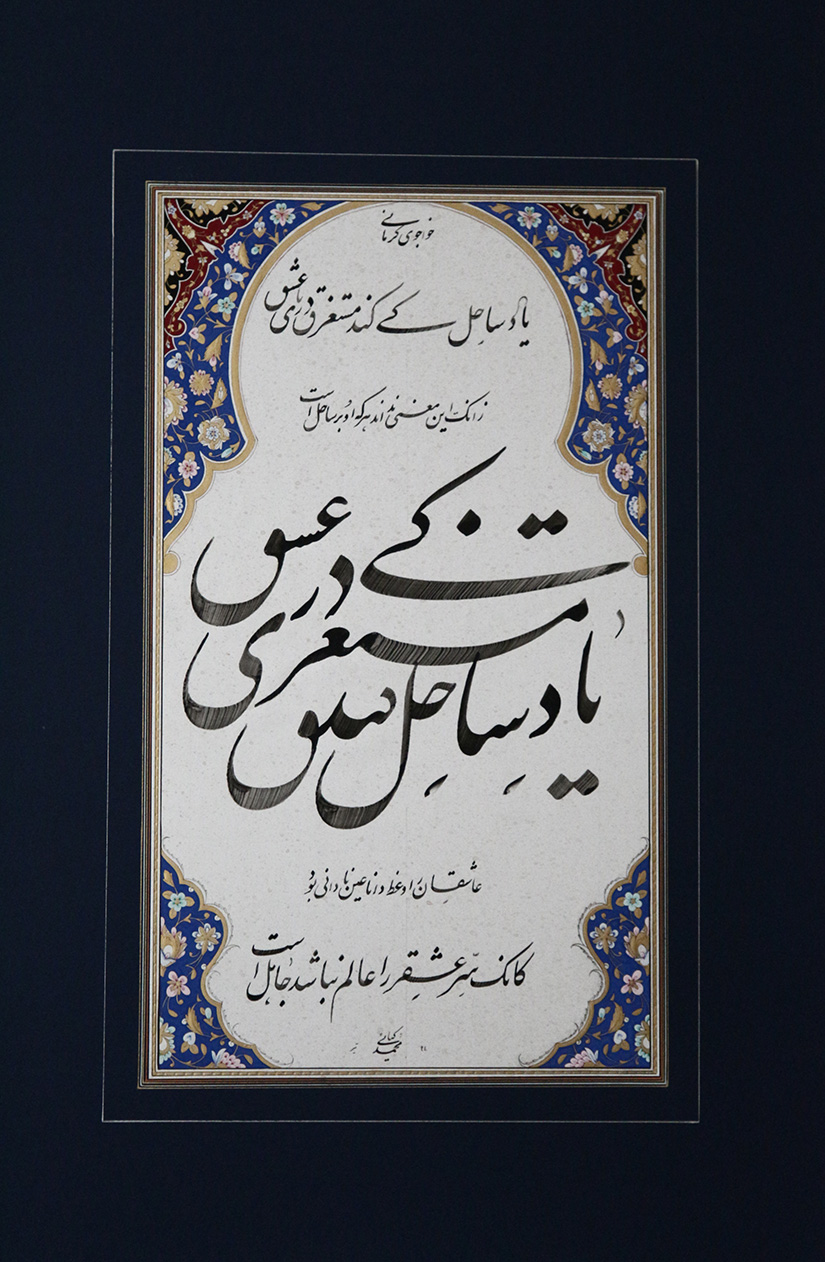 خواجوی کرمانی
یاد ساحل کے کند مستغرق دریای عشق
زانک این معنی نداند هر کو او بر ساحل است
یاد ساحل کے کند مستغرق دریای عشق
عاشقان را وعظ دانا عین نادانی بود
کانک سرّ عشق را عالم نباشد جاهل است